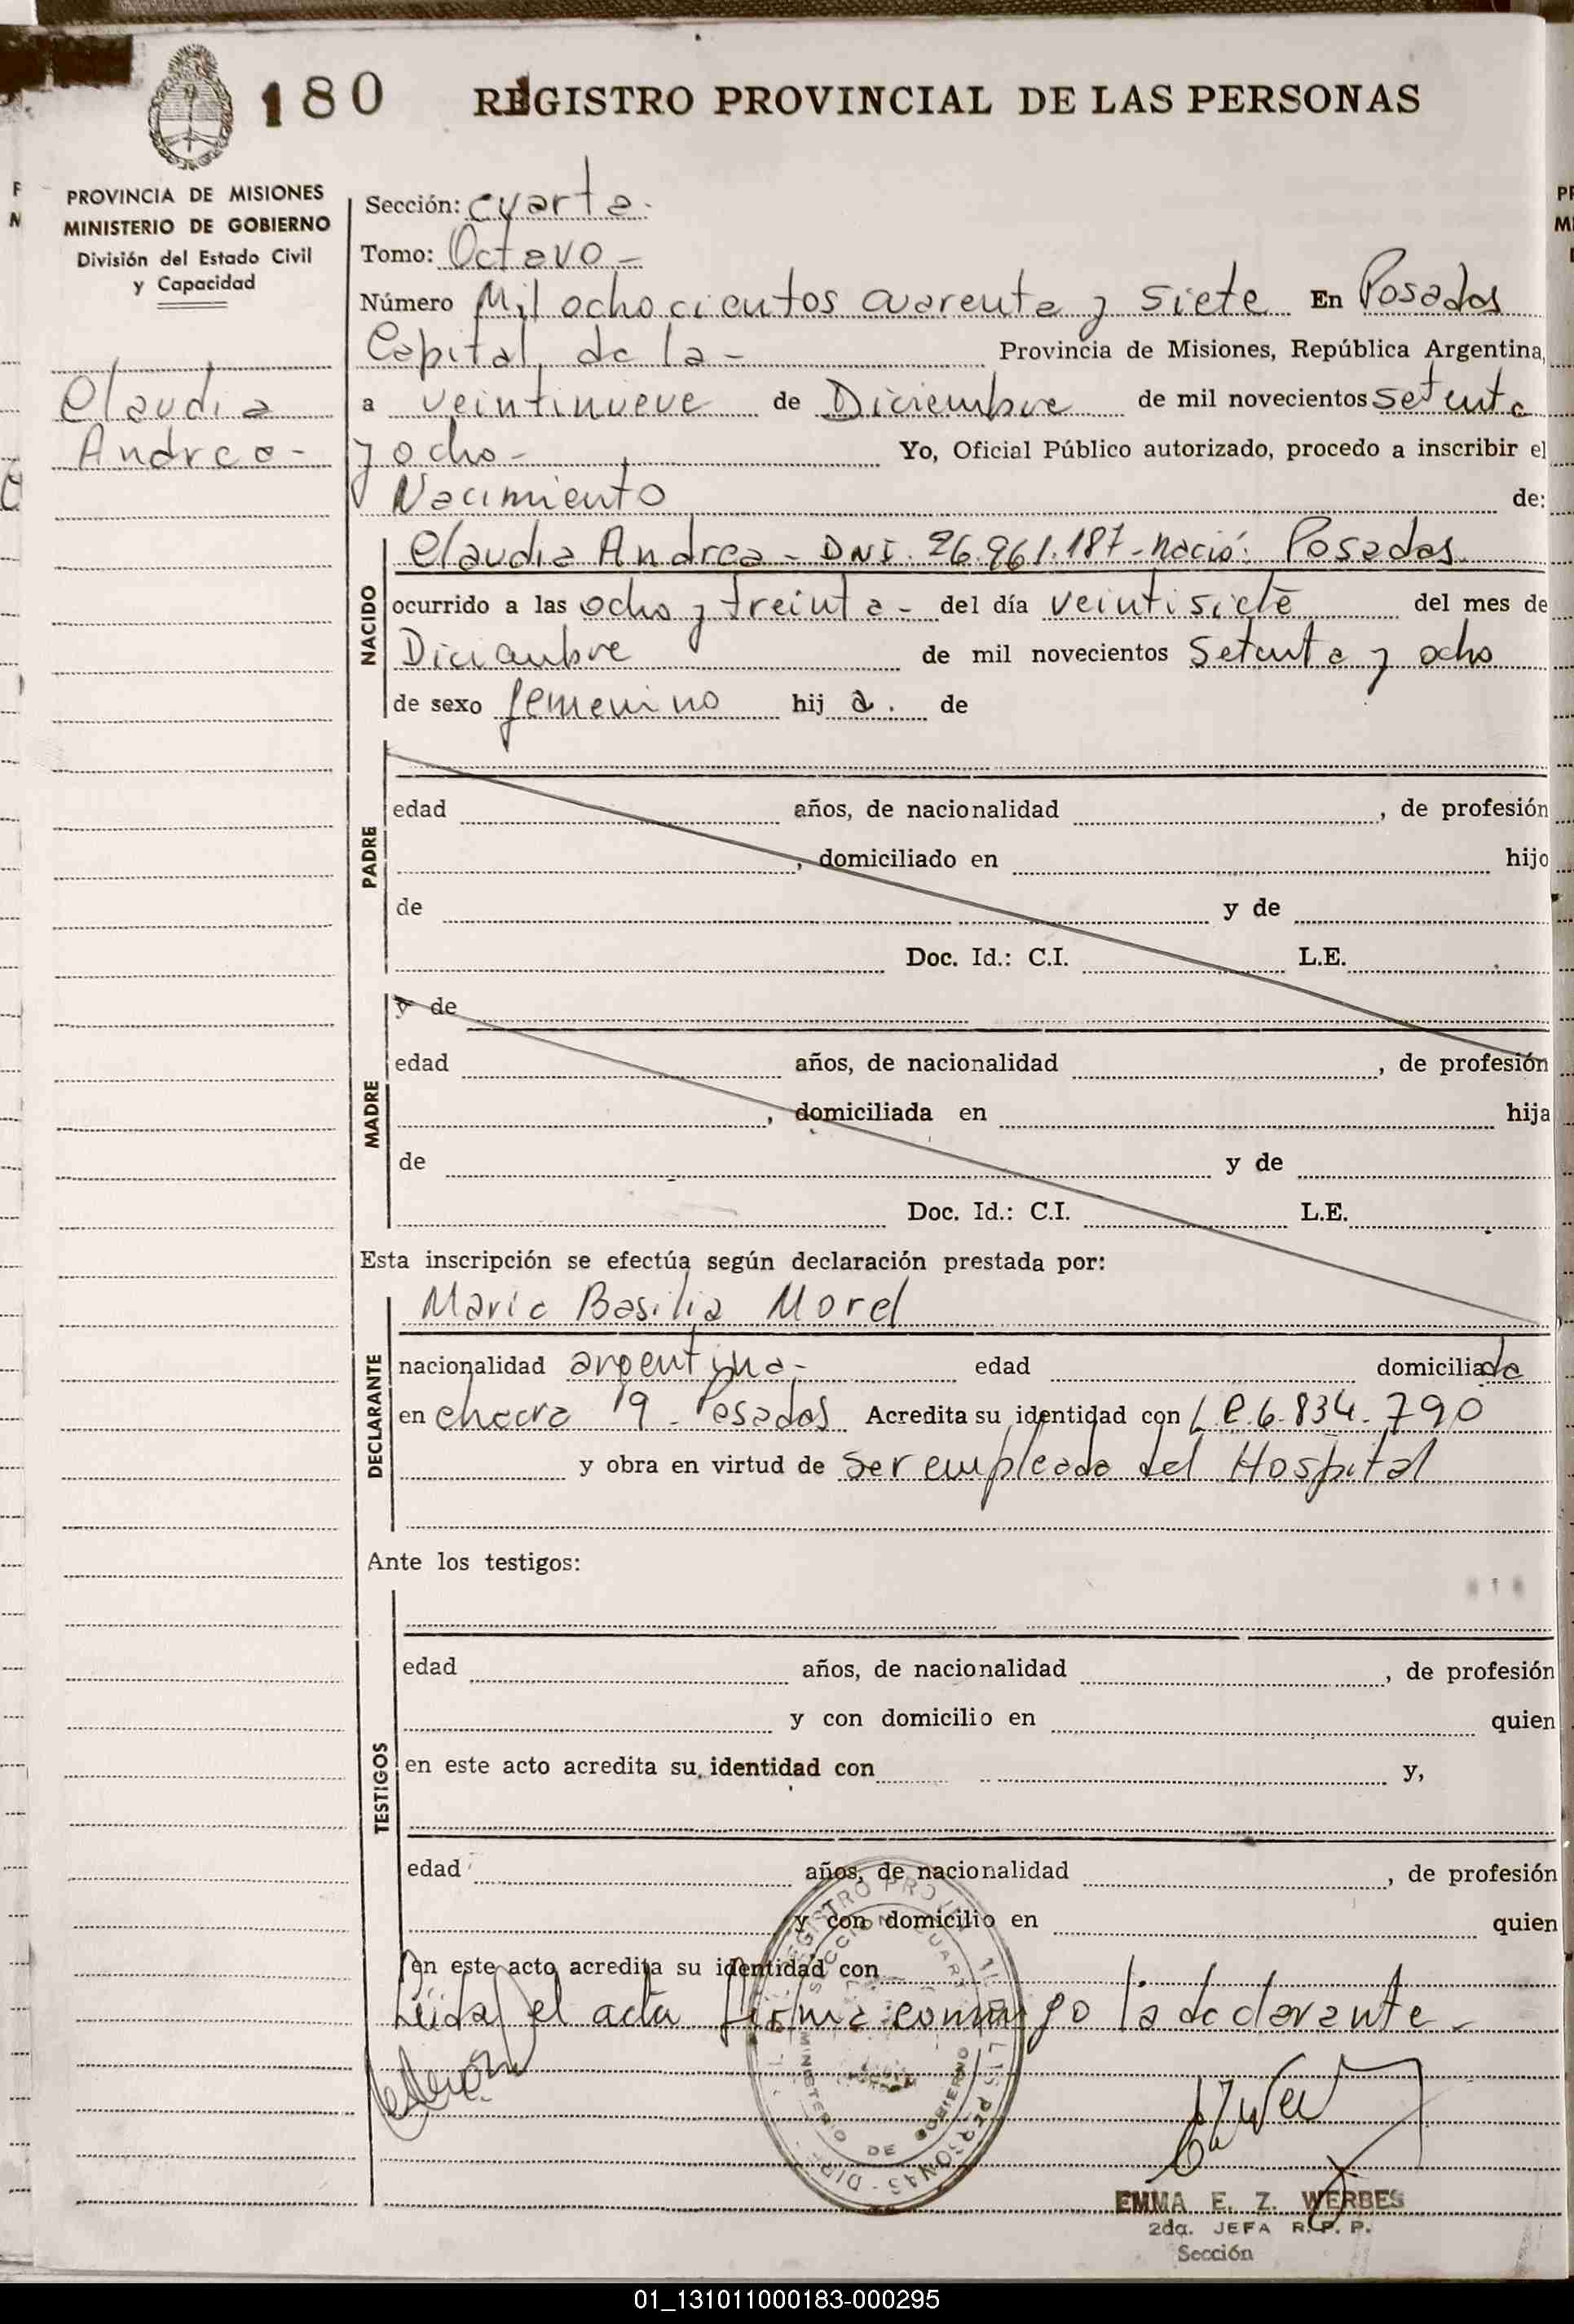 180 REGISTRO PROVINCIAL DE LAS PERSONAS
PROVINCIA DE MISIONES
MINISTERIO DE GOBIERNO
División del Estado Civil
y Capacidad
Claudia
Andrea -
Sección: cuarta -
Tomo: Octavo -
Número Mil ochocientos cuarenta y siete En Posadas
Capital de la - Provincia de Misiones, República Argentina,
a veintinueve de Diciembre de mil novecientos setenta
y ocho - Yo, Oficial Público autorizado, procedo a inscribir el
Nacimiento de:
NACIDO
Claudia Andrea - DNI. 26.961.187 - Nació: Posadas
ocurrido a las ocho y treinta - del día veintisiete del mes de
Diciembre de mil novecientos Setenta y ocho
de sexo femenino hij a. de
PADRE
edad años, de nacionalidad , de profesión
, domiciliado en hijo
de y de
Doc. Id.: C.I. L.E.
MADRE
y de
edad años, de nacionalidad , de profesión
, domiciliada en hija
de y de
Doc. Id.: C.I. L.E.
Esta inscripción se efectúa según declaración prestada por:
DECLARANTE
Maria Basilia Morel
nacionalidad argentina - edad domiciliada
en chacra 19 - Posadas Acredita su identidad con L.C. 6.834.790
y obra en virtud de ser empleada del Hospital
Ante los testigos:
TESTIGOS
edad años, de nacionalidad , de profesión
y con domicilio en quien
en este acto acredita su identidad con y,
edad años, de nacionalidad , de profesión
y con domicilio en quien
en este acto acredita su identidad con
Leída el acta firma conmigo la declarante -
MINISTERIO DE GOBIERNO
EMMA E. Z. WERBES
2da. JEFA R. P. P.
Sección
01_131011000183-000295